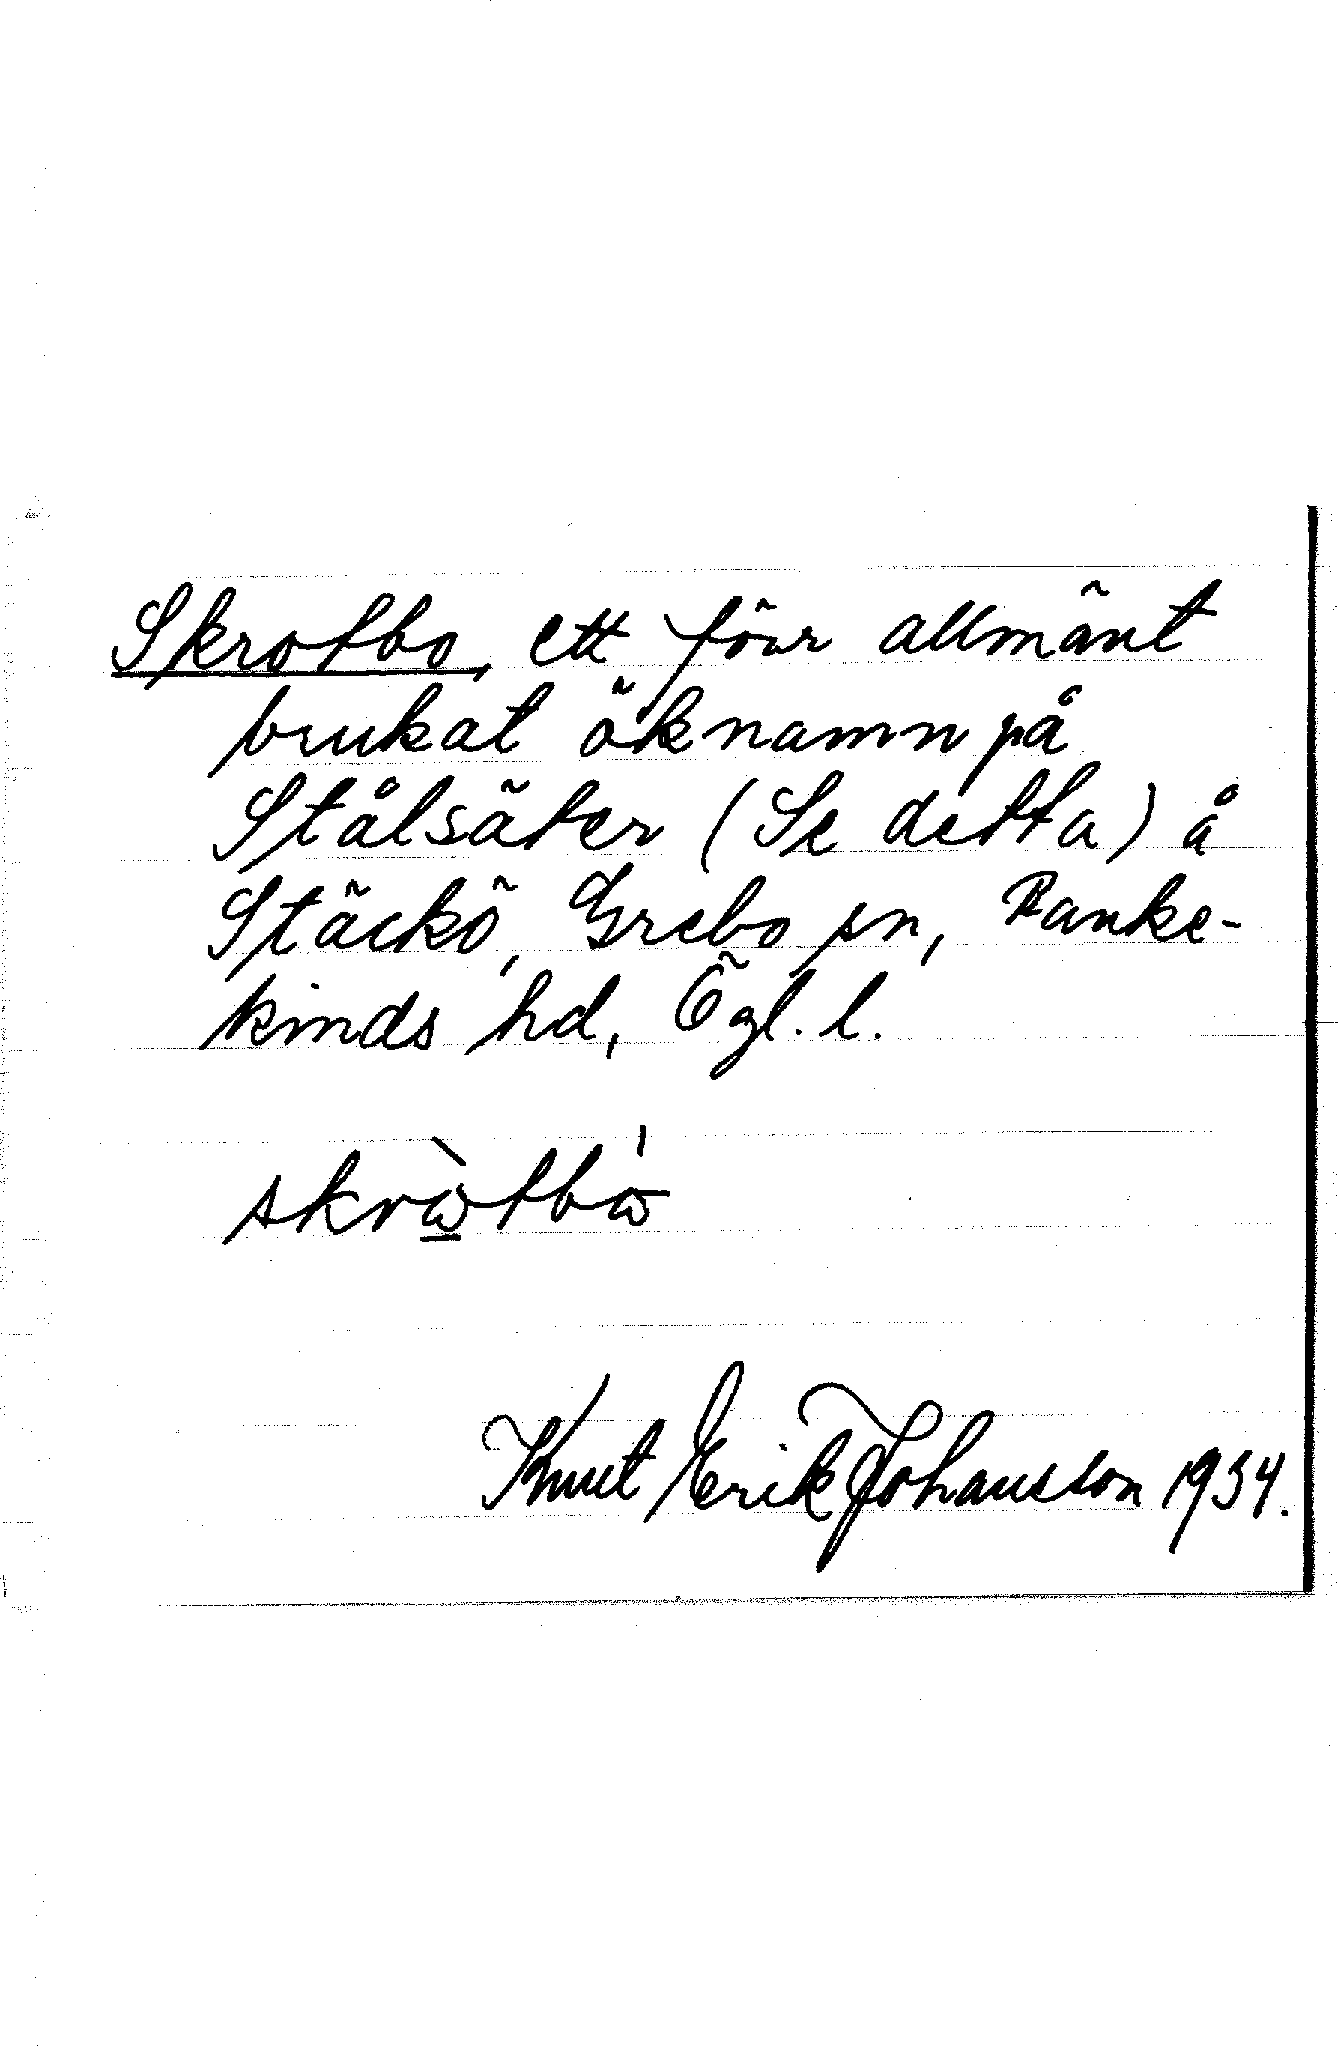 Skrotbo, ett förr allmänt
brukat öknamn på
Stålsäter (Se detta) å
Stäckö, Grebo sn, Banke-
kinds hd, Ögl. l.
skrɷ̀tbɷ̀
Knut Erik Johansson 1934.